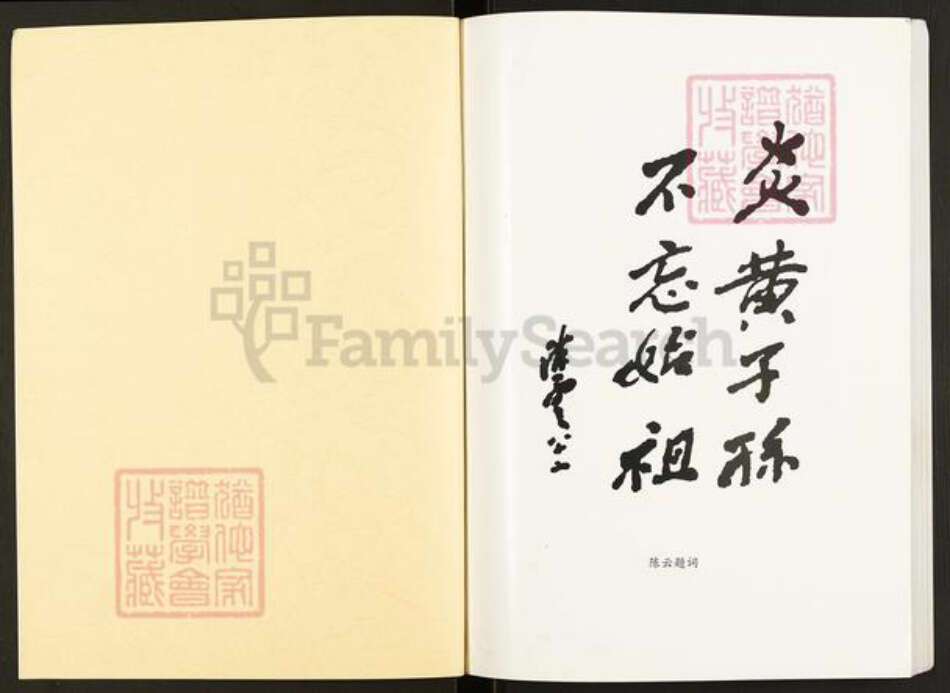 炎黄子孙
不忘始祖
陈云
八十二
陈云题词
猶他家
譜學會
收藏
猶他家
譜學會
收藏
FamilySearch